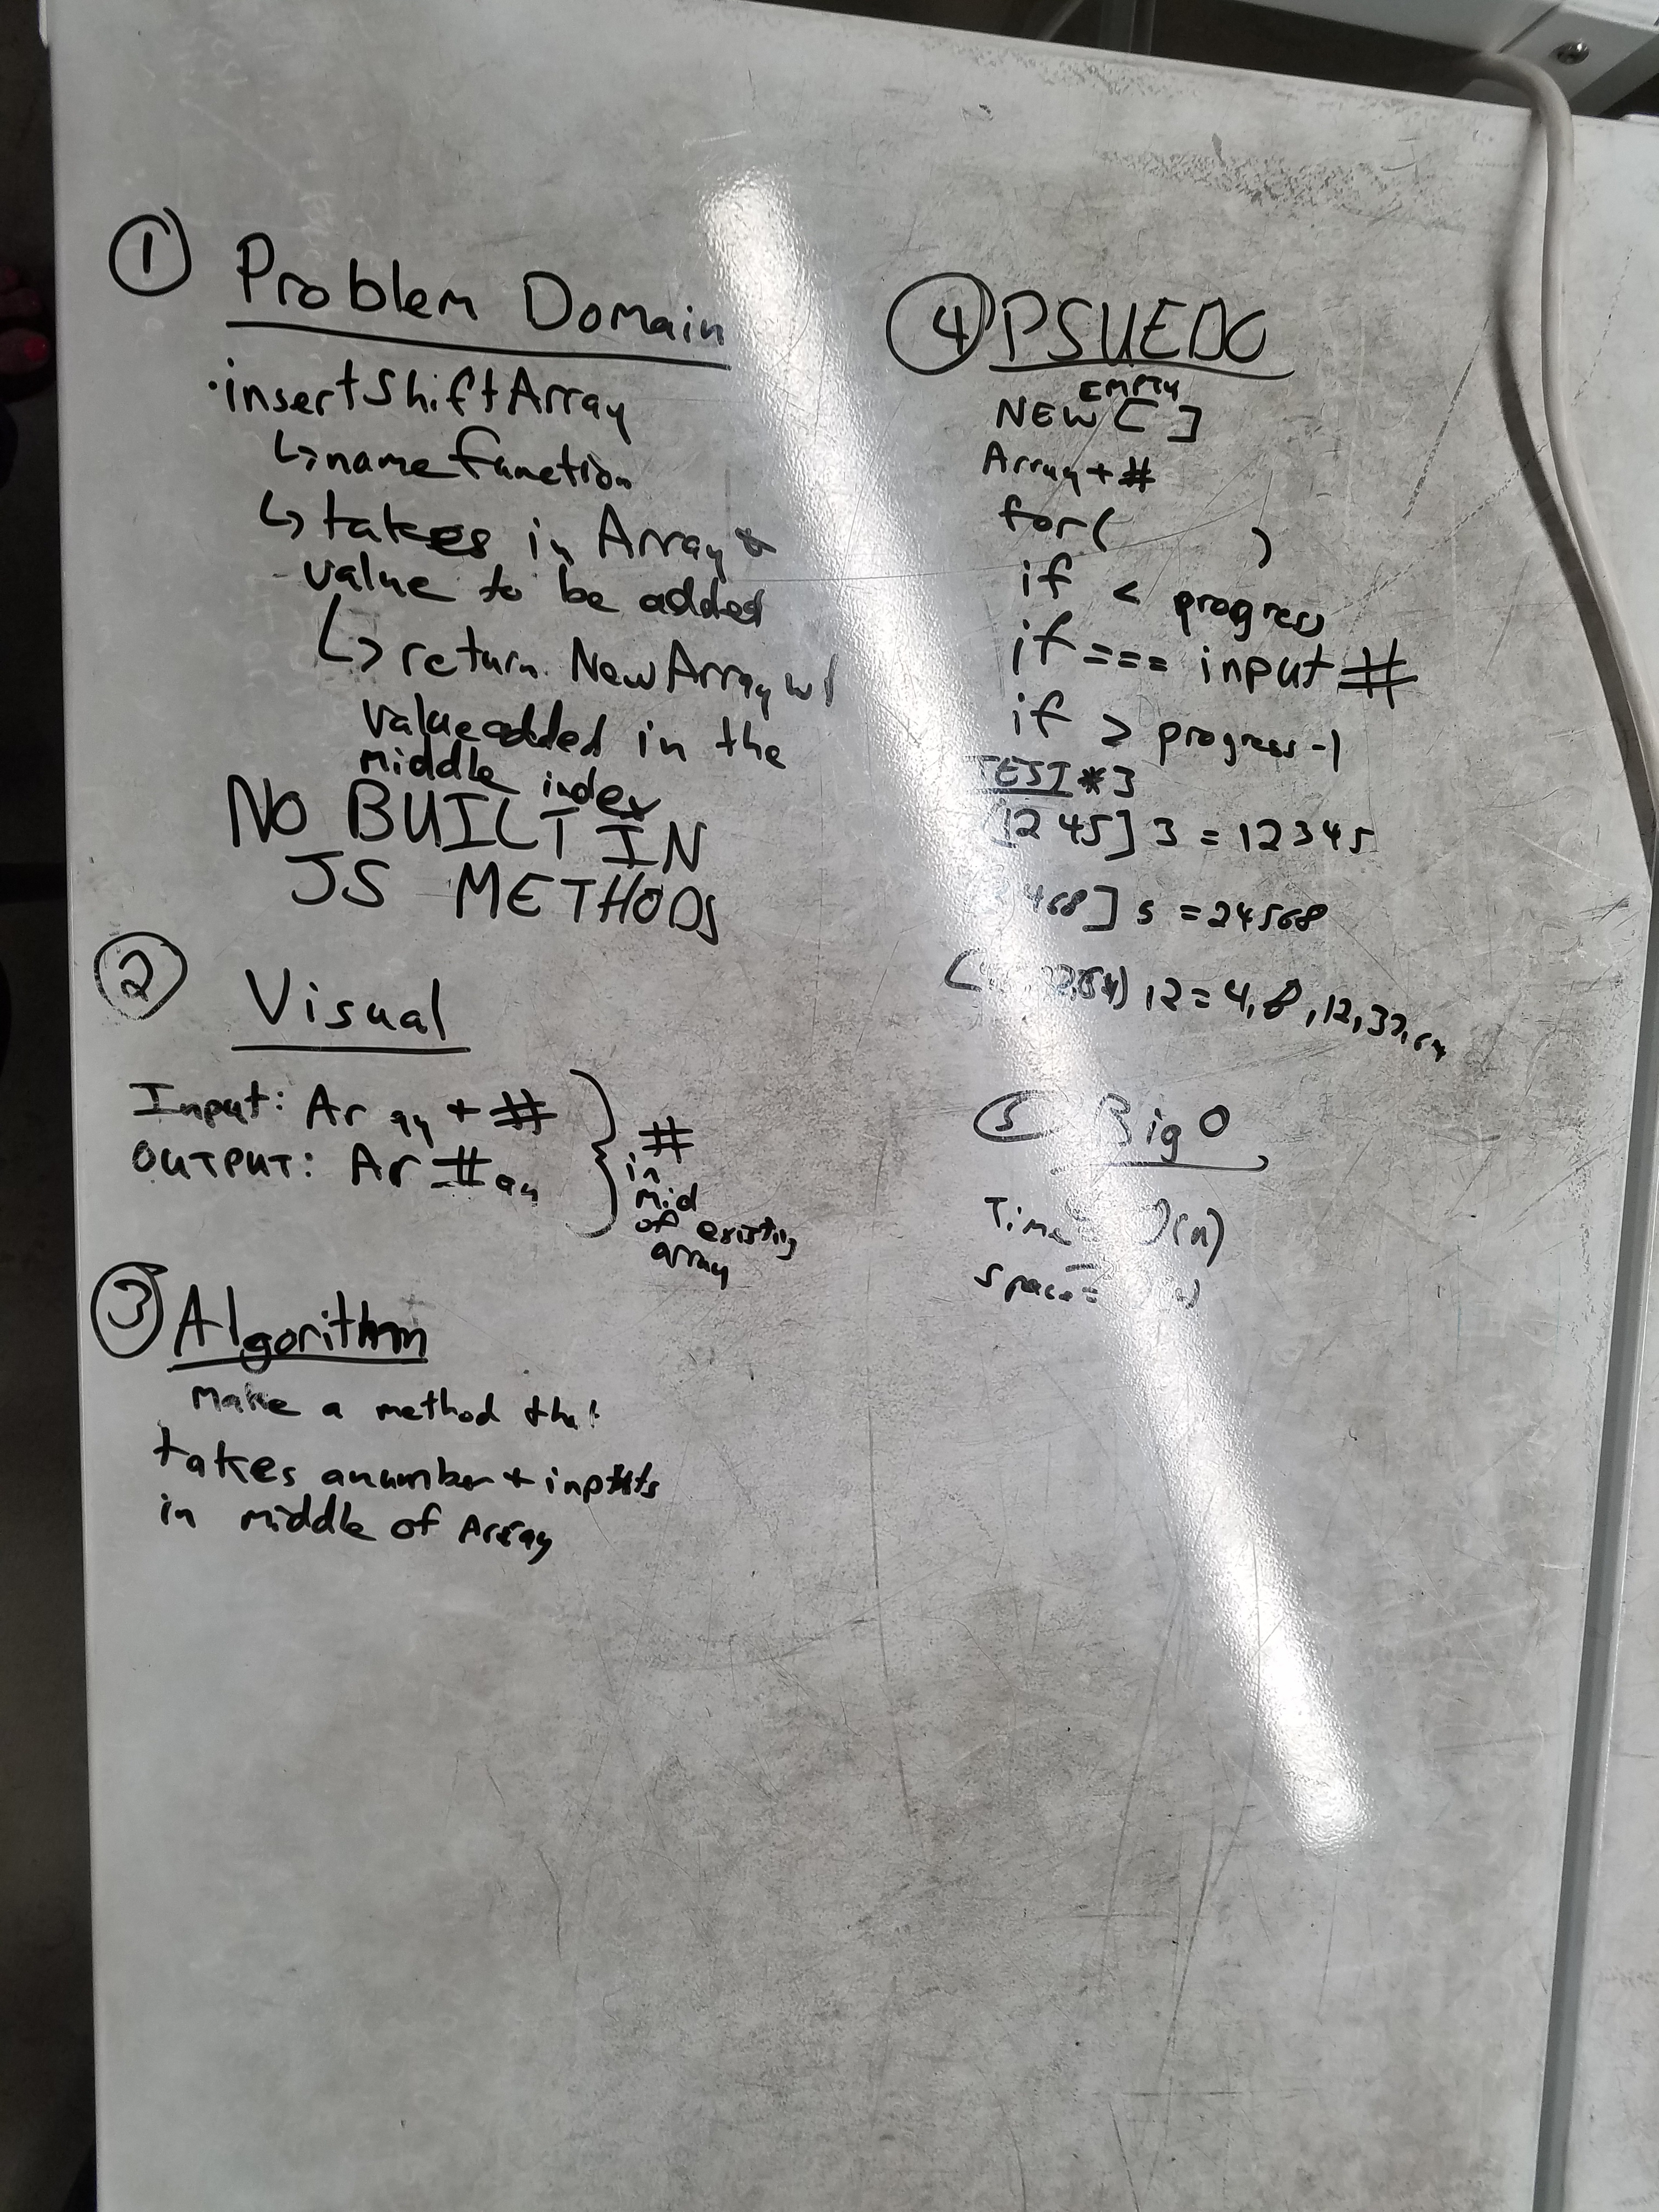 ① Problem Domain
· insertShiftArray
↳ name function
↳ takes in Array +
value to be added
↳ return New Array w/
value added in the
middle index
NO BUILT IN
JS METHODS
② Visual
Input: Ar ay + #
OUTPUT: Ar # ay
# in mid of existing array
③ Algorithm
Make a method that
takes a number + inputs
in middle of Array
④ PSUEDO
EMPTY
NEW [ ]
Array + #
for( )
if < progress
if === input #
if > progress -1
TEST * 3
[1245] 3 = 12345
468] 5 = 24568
12 = 4,8,12,32,64
⑤ Big O
Time = O(n)
Space =